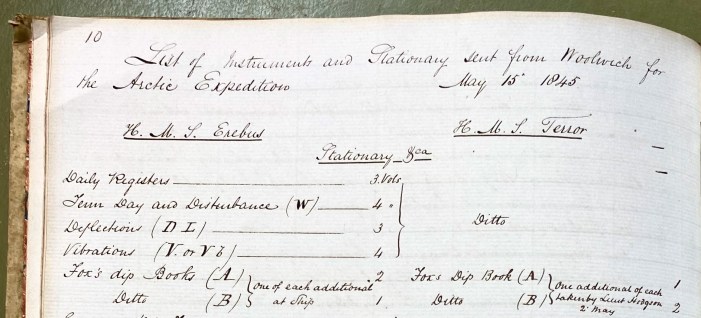 10
List of Instruments and Stationary sent from Woolwich for
the Arctic Expedition May 15 1845
H. M. S. Erebus H. M. S. Terror
Stationary &ca
Daily Registers 3 Vols
Term Day and Disturbance (W) 4 "
Deflections (D L) 3 Ditto
Vibrations (V. or V t) 4
Fox's dip Books (A) 2 Fox's Dip Book (A) 1
one of each additional at Ship one additional of each taken by Lieut Hodgson 2 May
Ditto (B) 1 Ditto (B) 2